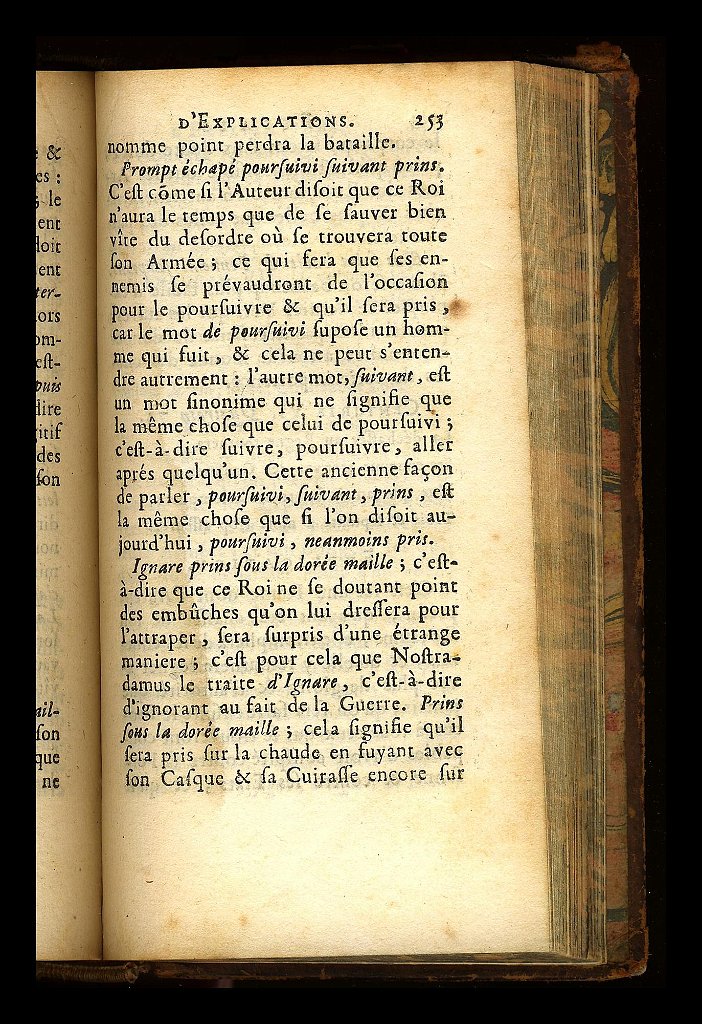 & 
es :
; le
ent
doit
ent
ter-
tors
om-
est-
puis
dire
itif
des
son
ail-
son
que
ne
D'EXPLICATIONS. 253
nomme point perdra la bataille.
Prompt échapé pourſuivi ſuivant prins.
C'eſt cõme ſi l'Auteur diſoit que ce Roi
n'aura le temps que de ſe ſauver bien
vîte du deſordre où ſe trouvera toute
ſon Armée ; ce qui fera que ſes en-
nemis ſe prévaudront de l'occaſion
pour le pourſuivre & qu'il ſera pris ,
car le mot de pourſuivi ſupoſe un hom-
me qui fuit , & cela ne peut s'enten-
dre autrement : l'autre mot, ſuivant , eſt
un mot ſinonime qui ne ſignifie que
la même choſe que celui de pourſuivi ;
c'eſt-à-dire ſuivre, pourſuivre, aller
aprés quelqu'un. Cette ancienne façon
de parler , pourſuivi, ſuivant , prins , eſt
la même choſe que ſi l'on diſoit au-
jourd'hui , pourſuivi , neanmoins pris.
Ignare prins ſous la dorée maille ; c'eſt-
à-dire que ce Roi ne ſe doutant point
des embûches qu'on lui dreſſera pour
l'attraper , ſera ſurpris d'une étrange
maniere ; c'eſt pour cela que Noſtra-
damus le traite d'Ignare , c'eſt-à-dire
d'ignorant au fait de la Guerre. Prins
ſous la dorée maille ; cela ſignifie qu'il
ſera pris ſur la chaude en fuyant avec
ſon Caſque & ſa Cuiraſſe encore ſur